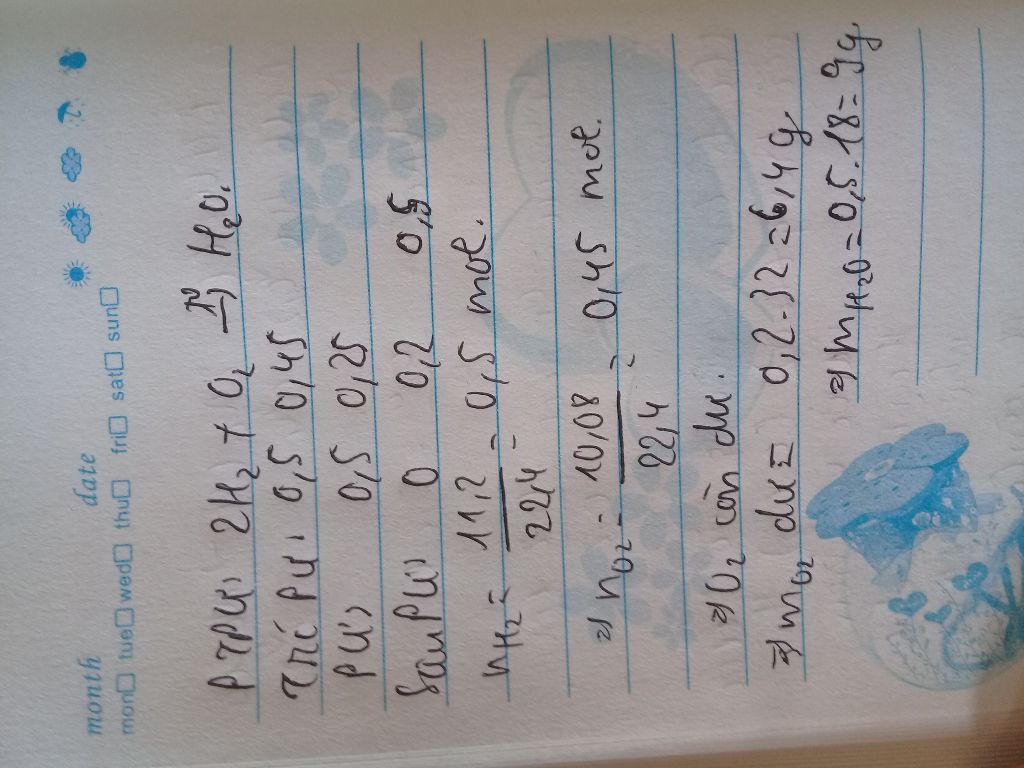 month date
mon tue wed thu fri sat sun
PTPƯ: 2H₂ + O₂ t⁰→ H₂O.
Trc PƯ: 0,5 0,45
PƯ: 0,5 0,25
Sau PƯ: 0 0,2 0,5
nH₂ = 11,2/22,4 = 0,5 mol.
⇒ nO₂ = 10,08/22,4 = 0,45 mol.
⇒ O₂ còn dư.
⇒ mO₂ dư = 0,2.32 = 6,4 g
⇒ mH₂O = 0,5.18 = 9g